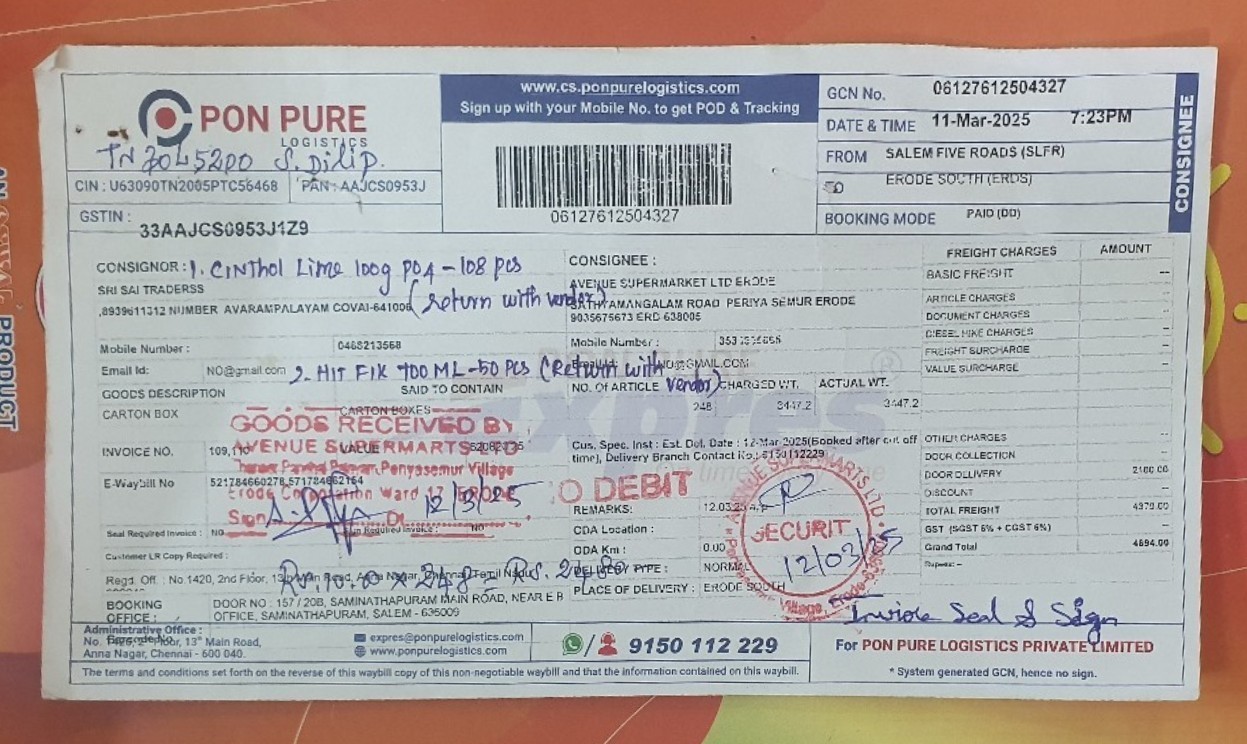 PON PURE
LOGISTICS
S. Dilip.
CIN : U63090TN2005PTC56468
PAN : AAJCS0953J
GSTIN :
33AAJCS0953J1Z9
www.cs.ponpurelogistics.com
Sign up with your Mobile No. to get POD & Tracking
06127612504327
GCN No. 06127612504327
DATE & TIME 11-Mar-2025 7:23PM
FROM SALEM FIVE ROADS (SLFR)
ERODE SOUTH (ERDS)
BOOKING MODE PAID (DD)
CONSIGNEE
CONSIGNOR : 1. Cinthol Lime 100g PO4 - 108 pcs
(Return with vendor)
SRI SAI TRADERSS
,8939611312 NUMBER AVARAMPALAYAM COVAI-641006
Mobile Number : 0466213568
Email Id: NO@gmail.com
2. HIT FIK 700 ML - 50 PCS (Return with vendor)
CONSIGNEE :
AVENUE SUPERMARKET LTD ERODE
SATHYAMANGALAM ROAD PERIYA SEMUR ERODE
9035675673 ERD 638005
Mobile Number :
GOODS DESCRIPTION SAID TO CONTAIN
NO. OF ARTICLE CHARGED WT. ACTUAL WT.
CARTON BOX CARTON BOXES 248 3447.2 3447.2
FREIGHT CHARGES AMOUNT
BASIC FREIGHT --
ARTICLE CHARGES --
DOCUMENT CHARGES --
DIESEL HIKE CHARGES --
FREIGHT SURCHARGE --
VALUE SURCHARGE --
OTHER CHARGES --
DOOR COLLECTION --
DOOR DELIVERY 2100.00
DISCOUNT --
TOTAL FREIGHT 4379.00
GST (SGST 6% + CGST 6%) --
Grand Total 4694.00
Rupees: --
GOODS RECEIVED BY
AVENUE SUPERMARTS LTD
Periyasemur Village
Erode Corporation Ward 17, ERODE
Sign
12/3/25
INVOICE NO. 109,110 VALUE
E-Waybill No 521784660278,571784662164
Seal Required Invoice : NO
Sign Required Invoice : NO
Customer LR Copy Required :
Cus. Spec. Inst : Est. Del. Date : 12-Mar-2025(Booked after cut off
time), Delivery Branch Contact No.:
NO DEBIT
REMARKS:
ODA Location :
ODA Km : 0.00
DELIVERY TYPE : NORMAL
PLACE OF DELIVERY : ERODE SOUTH
AVENUE SUPERMARTS LTD.
SECURITY
12/03/25
Village, Erode
Regd. Off : No.1420, 2nd Floor, 13th Main Road, Anna Nagar, Chennai, Tamil Nadu
Rs.10.00 x 248 = Rs. 2480
BOOKING OFFICE :
DOOR NO : 157 / 20B, SAMINATHAPURAM MAIN ROAD, NEAR E B
OFFICE, SAMINATHAPURAM, SALEM - 636009
Invoice Seal & Sign
Administrative Office :
13th Main Road,
Anna Nagar, Chennai - 600 040.
expres@ponpurelogistics.com
www.ponpurelogistics.com
9150 112 229
For PON PURE LOGISTICS PRIVATE LIMITED
The terms and conditions set forth on the reverse of this waybill copy of this non-negotiable waybill and that the information contained on this waybill.
* System generated GCN, hence no sign.
PRODUCT